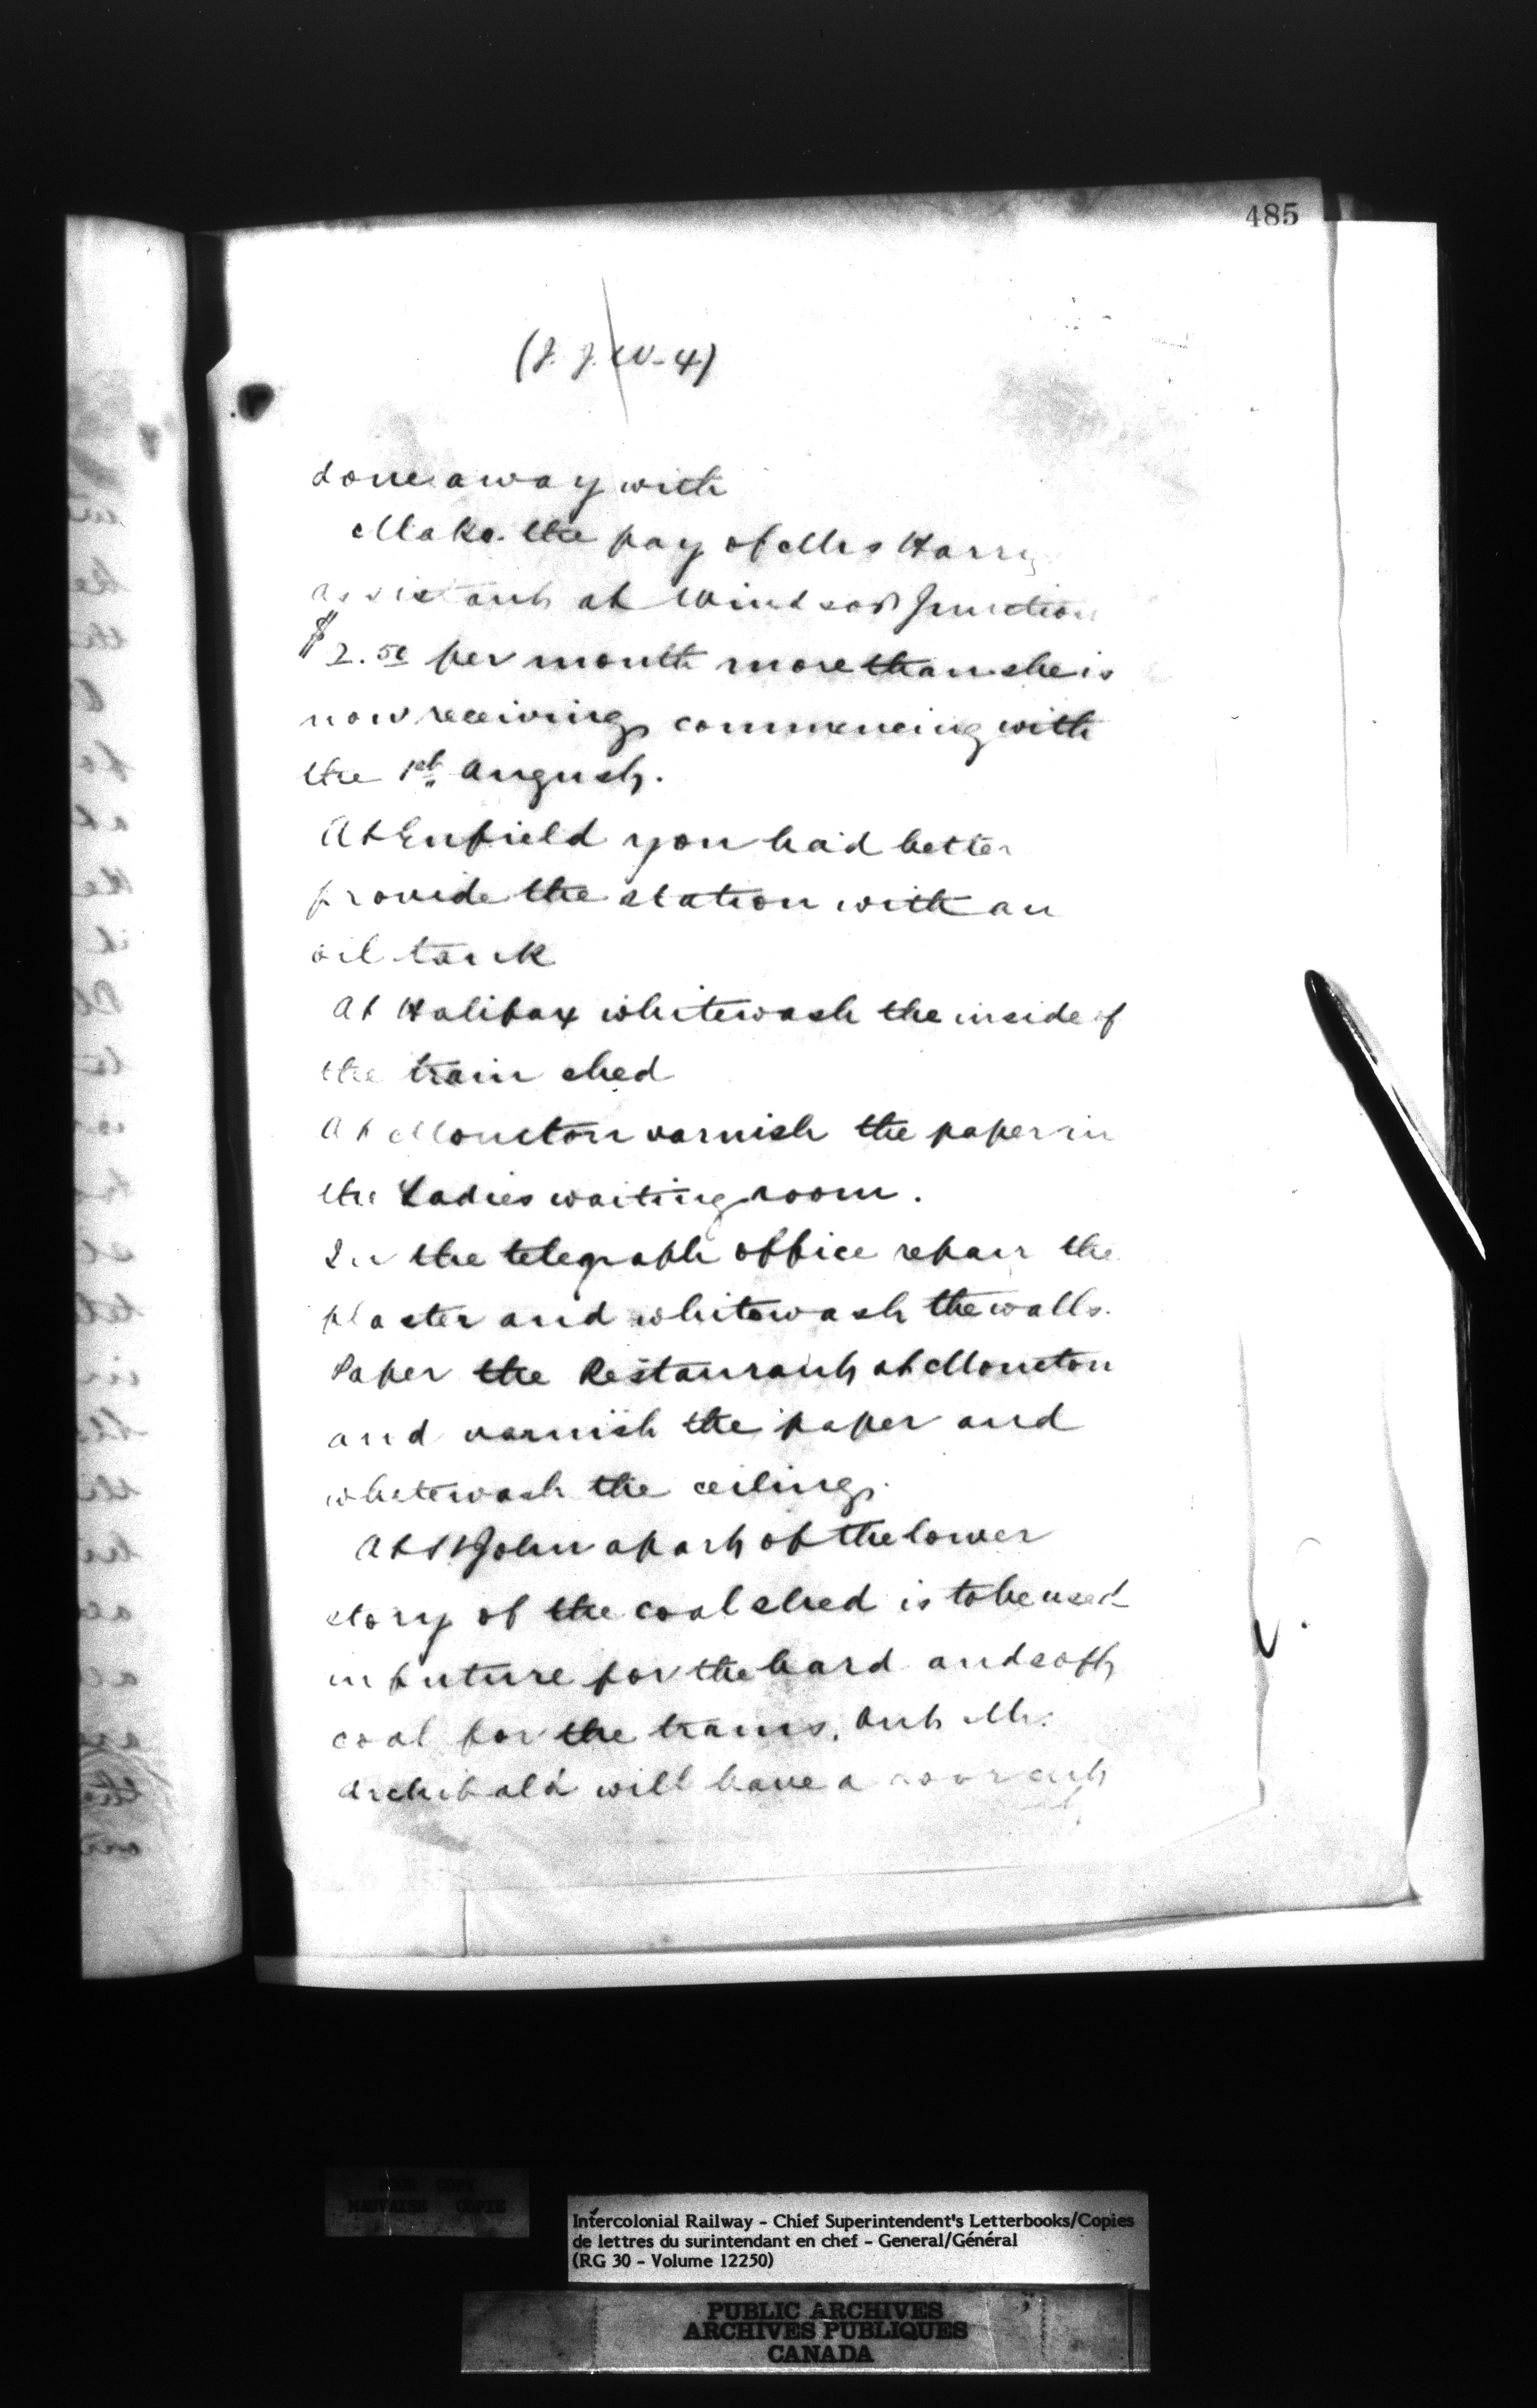 485
(J. J. W - 4)
done away with
Make the pay of Mrs Harry
assistant at Windsor Junction
$2.50 per month more than she is
now receiving, commencing with
the 1st August.
At Enfield you had better
provide the station with an
oil tank
At Halifax whitewash the inside of
the train shed
At Moncton varnish the paper in
the Ladies waiting room.
In the telegraph office repair the
plaster and whitewash the walls.
Paper the Restaurant at Moncton
and varnish the paper and
whitewash the ceiling.
At St John a part of the lower
story of the coal shed is to be used
in future for the hard and soft
coal for the trains. But Mr.
Archibald will have a
POOR COPY
MAUVAISE COPIE
Intercolonial Railway - Chief Superintendent's Letterbooks/Copies
de lettres du surintendant en chef - General/Général
(RG 30 - Volume 12250)
PUBLIC ARCHIVES
ARCHIVES PUBLIQUES
CANADA